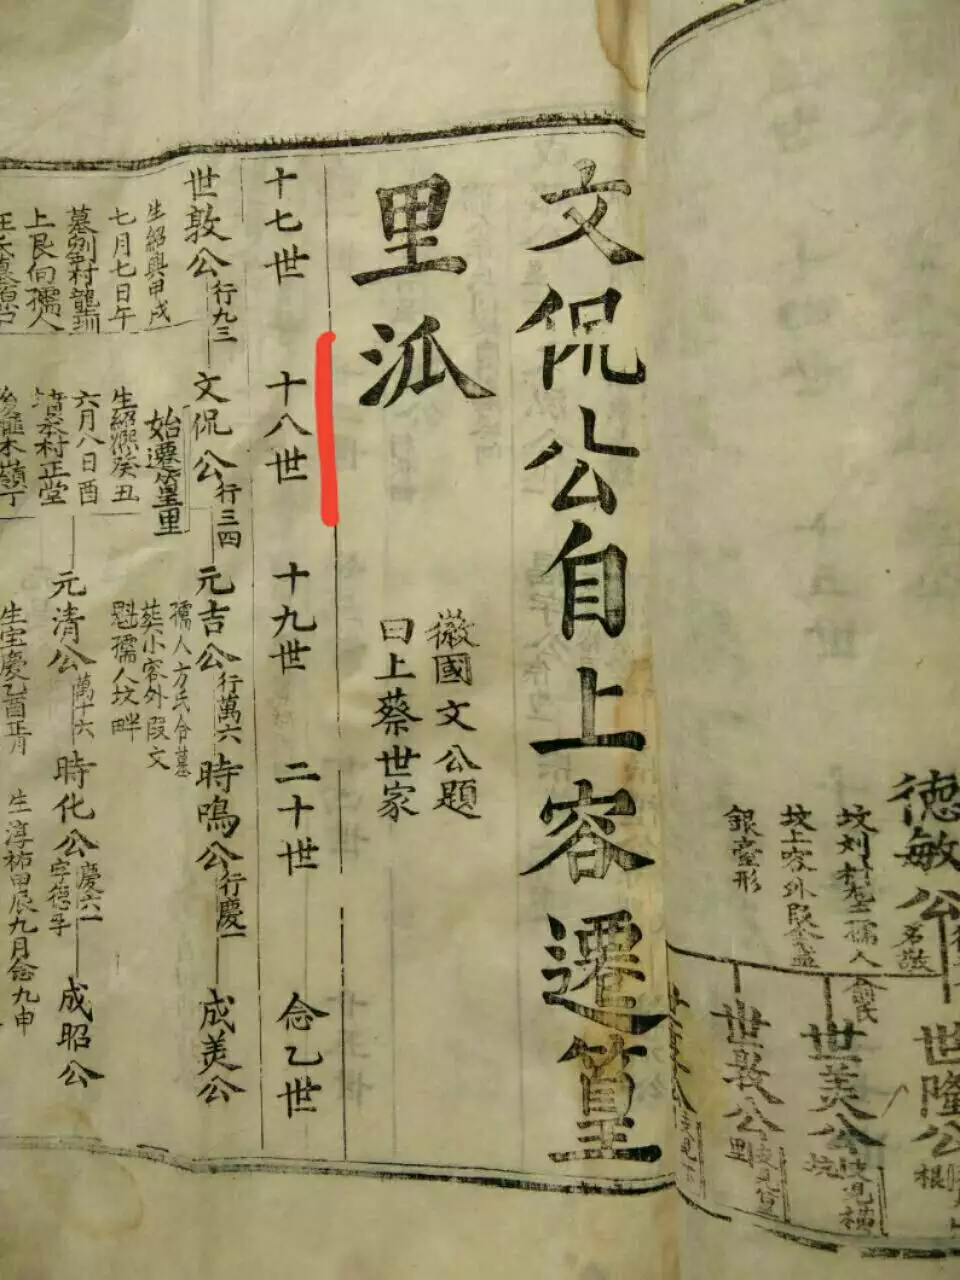 德敏公
名敬
坟刘村
孺人
坟上容外段
銀臺形
俞氏
世隆公
世美公
世敦公
文侃公自上容遷篁
里派
徽國文公題
曰上蔡世家
十七世
十八世
十九世
二十世
念乙世
世敦公行九三
文侃公行三四
元吉公行萬六
時鳴公行慶一
成美公
生紹興甲戌
七月七日午
上艮向孺人
始遷篁里
生紹熙癸丑
六月八日酉
村正堂
孺人方氏合墓
葬小容外段文
魁孺人坟畔
元清公萬十六
時化公慶六一
字德孚
成昭公
生宝慶乙酉正月
生淳祐甲辰九月念九申